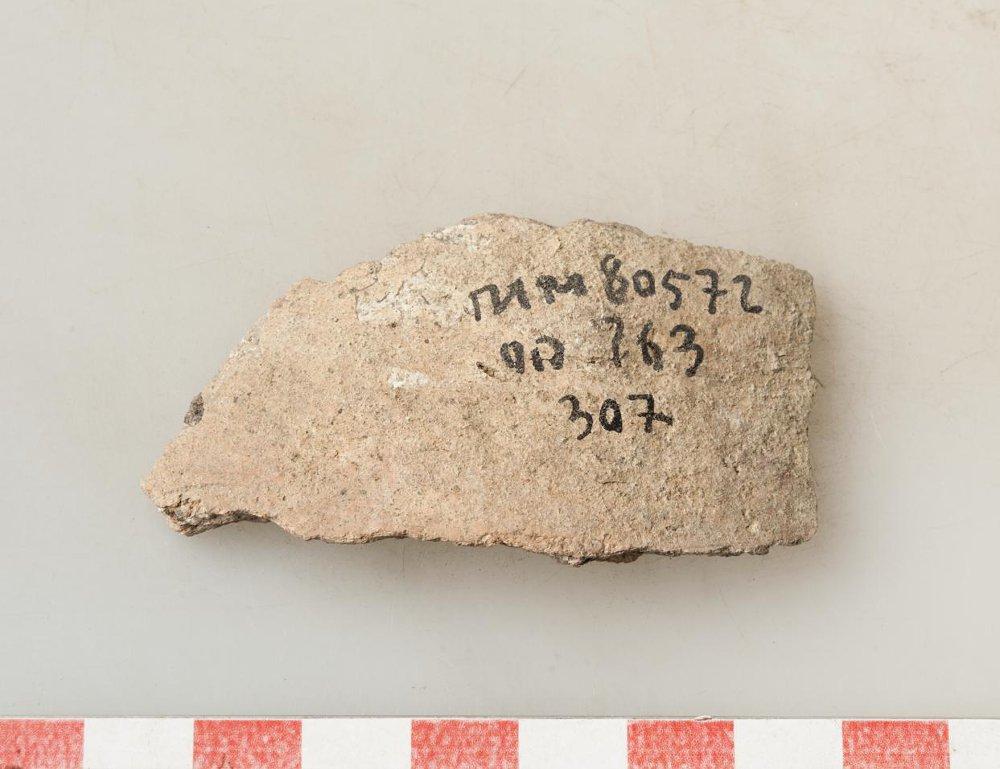 ГИМ 80572
оп 763
307